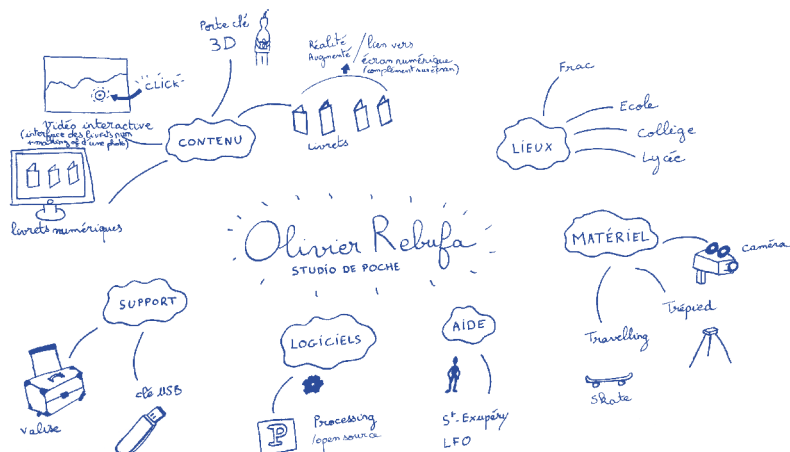 Porte clé
3D
Réalité
Augmentée
/ lien vers
écran numérique
(complément sur écran)
CLICK
Vidéo interactive
(interface des livrets non
+ making of d'une photo)
CONTENU
Livrets
livrets numériques
Frac
Ecole
Collège
Lycée
LIEUX
Olivier Rebufa
STUDIO DE POCHE
MATÉRIEL
caméra
Trépied
Travelling
Skate
SUPPORT
clé USB
valise
LOGICIELS
P
Processing
/open source
AIDE
St-Exupéry
LFO